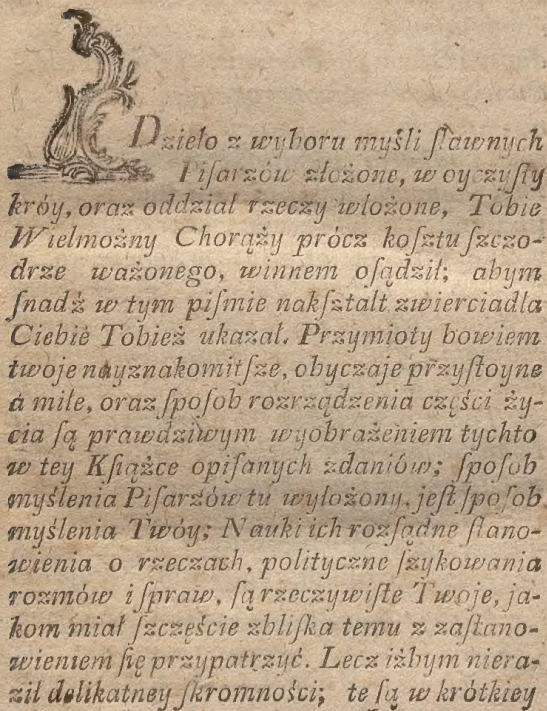 Dzieło z wyboru myśli ſławnych
Piſarzów złożone, w oyczyſty
króy, oraz oddział rzeczy włożone, Tobie
Wielmożny Chorąży prócz koſztu ſzczo-
drze ważonego, winnem oſądził; abym
ſnadź w tym piſmie nakſztałt zwierciadła
Ciebie Tobież ukazał. Przymioty bowiem
twoje nayznakomitſze, obyczaje przyſtoyne
á miłe, oraz ſpoſob rozrządzenia części ży-
cia ſą prawdziwym wyobrażeniem tychto
w tey Kſiążce opiſanych zdaniów; ſpoſob
myślenia Piſarzów tu wyłożony, jeſt ſpoſob
myślenia Twóy; Nauki ich rozſądne ſtano-
wienia o rzeczach, polityczne ſzykowania
rozmów i ſpraw, ſą rzeczywiſte Twoje, ja-
kom miał ſzczęście zbliſka temu z zaſtano-
wieniem ſię przypatrzyć. Lecz iżbym niera-
ził delikatney ſkromności; te ſą w krótkiey